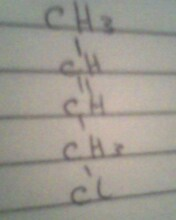 CH3
CH
CH
CH2
Cl